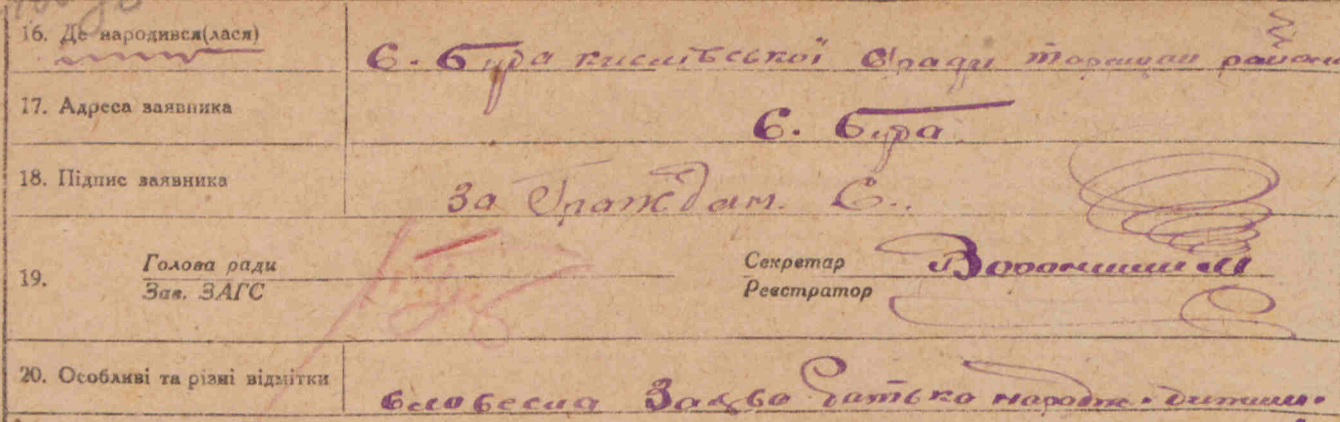 16. Де народився(лася) С. Бура кислівської С/ради Таращан района
17. Адреса заявника С. Бура
18. Підпис заявника За Граждан. С..
19. Голова ради Секретар
Зав. ЗАГС Реєстратор
20. Особливі та різні відмітки батько народж. дитини.